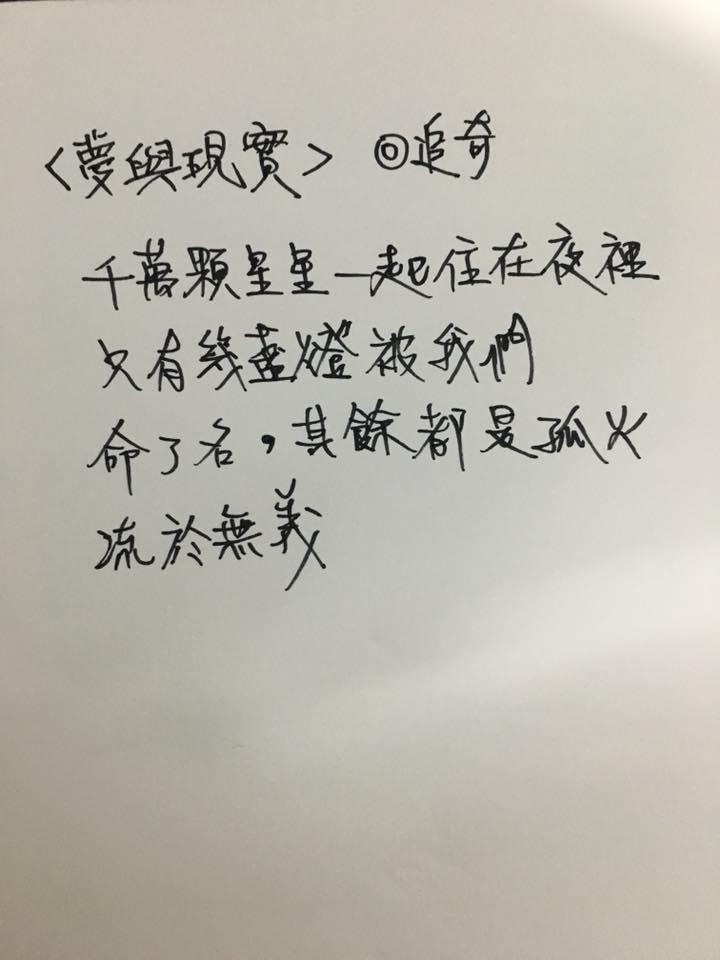 <夢與現實> ◎追奇
千萬顆星星一起住在夜裡
只有幾盞燈被我們
命了名,其餘都是孤火
流於無義